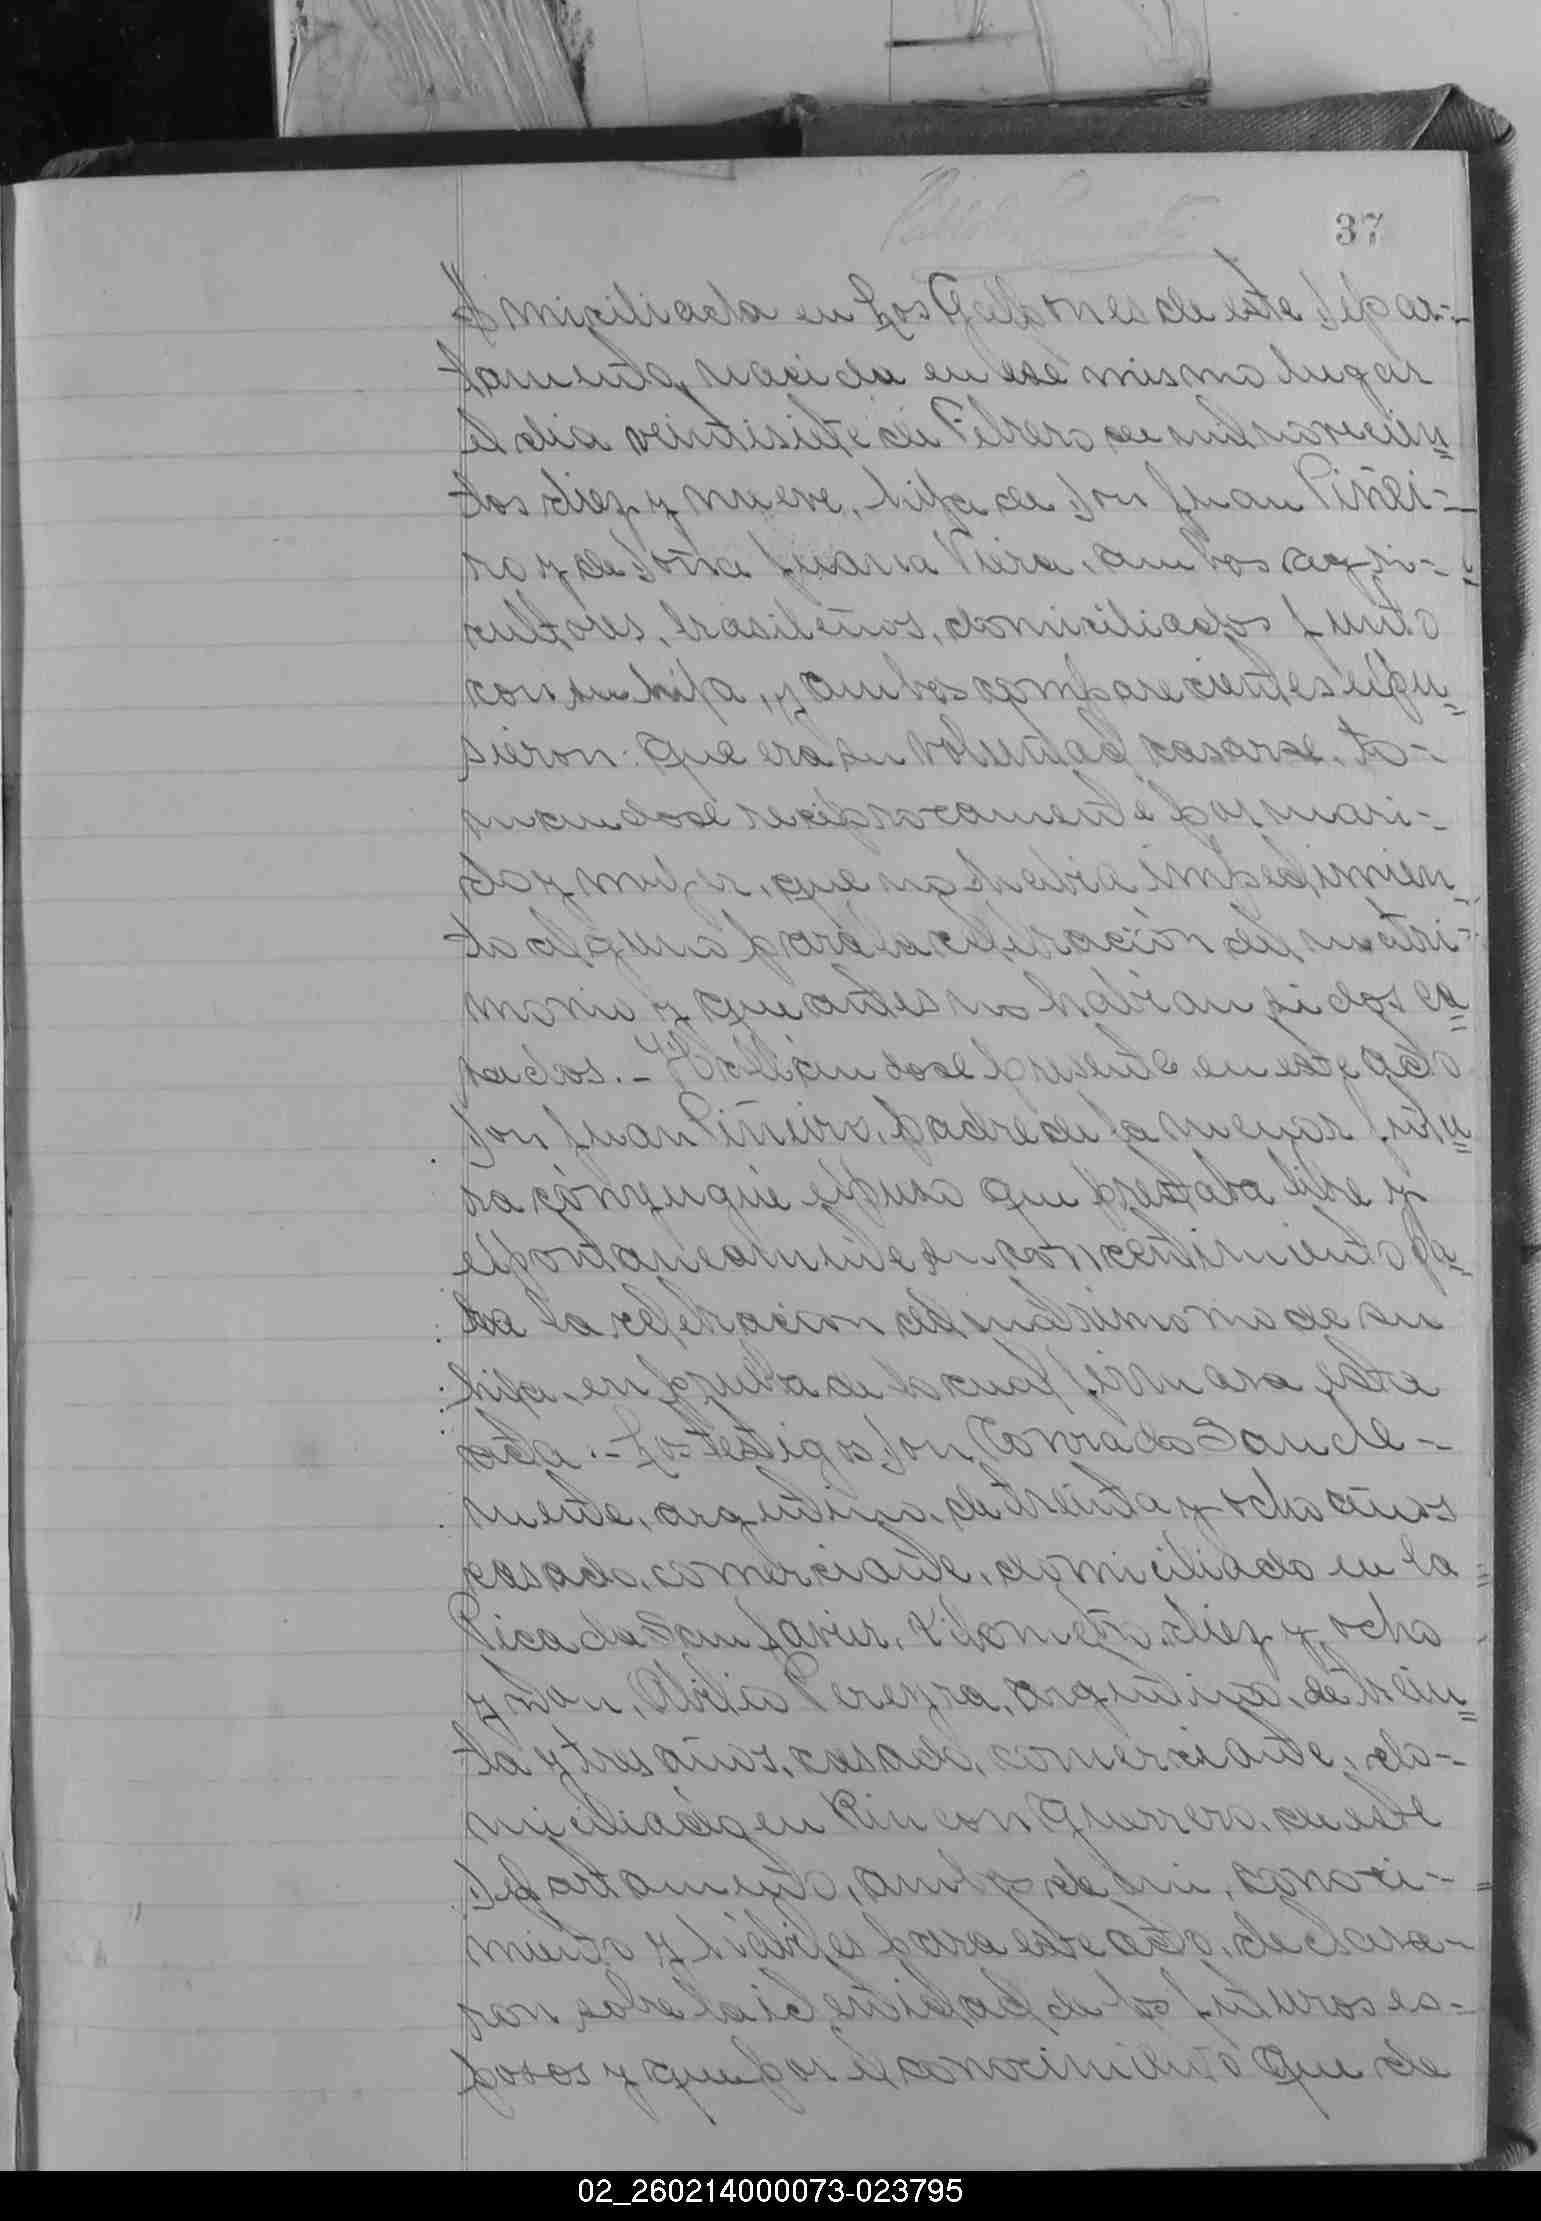 37
domiciliada en Los Helechones de este Depar-
tamento, nacida en ese mismo lugar
el dia veintisiete de Febrero de mil novecien=
tos diez y nueve, hija de Don Juan Piñei-
ro y de Doña Juana Viera, ambos agri-
cultores, brasileños, domiciliados junto
con su hija, y ambos comparecientes expu=
sieron: Que era su voluntad casarse, to-
mandose reciprocamente por mari-
do y mujer, que no habia impedimien
to alguno para la celebración del matri-
monio y que antes no habian sidos ca=
sados.- Hallandose presente en este acto
Don Juan Piñeiro, padre de la menor futu=
ra cónyugue expuso que prestaba libre y
espontaneamente su concentimiento pa=
ra la celebracion del matrimonio de su
hija, en prueba de lo cual firmara esta
acta.- Los testigos Don Conrado
argentino, de treinta y ocho años
casado, comerciante, domiciliado en la
Picada San Javier, Kilometro diez y ocho
y Don, Abilio Pereyra, argentino, de trein=
ta y tres años, casado, comerciante, do-
miciliado en Rincon Guerrero, de este
Departamento, ambos de mi, conoci-
miento y hábiles para este acto, declara-
ron sobre la identidad de los futuros es-
posos y que por el conocimiento que de
02_260214000073-023795